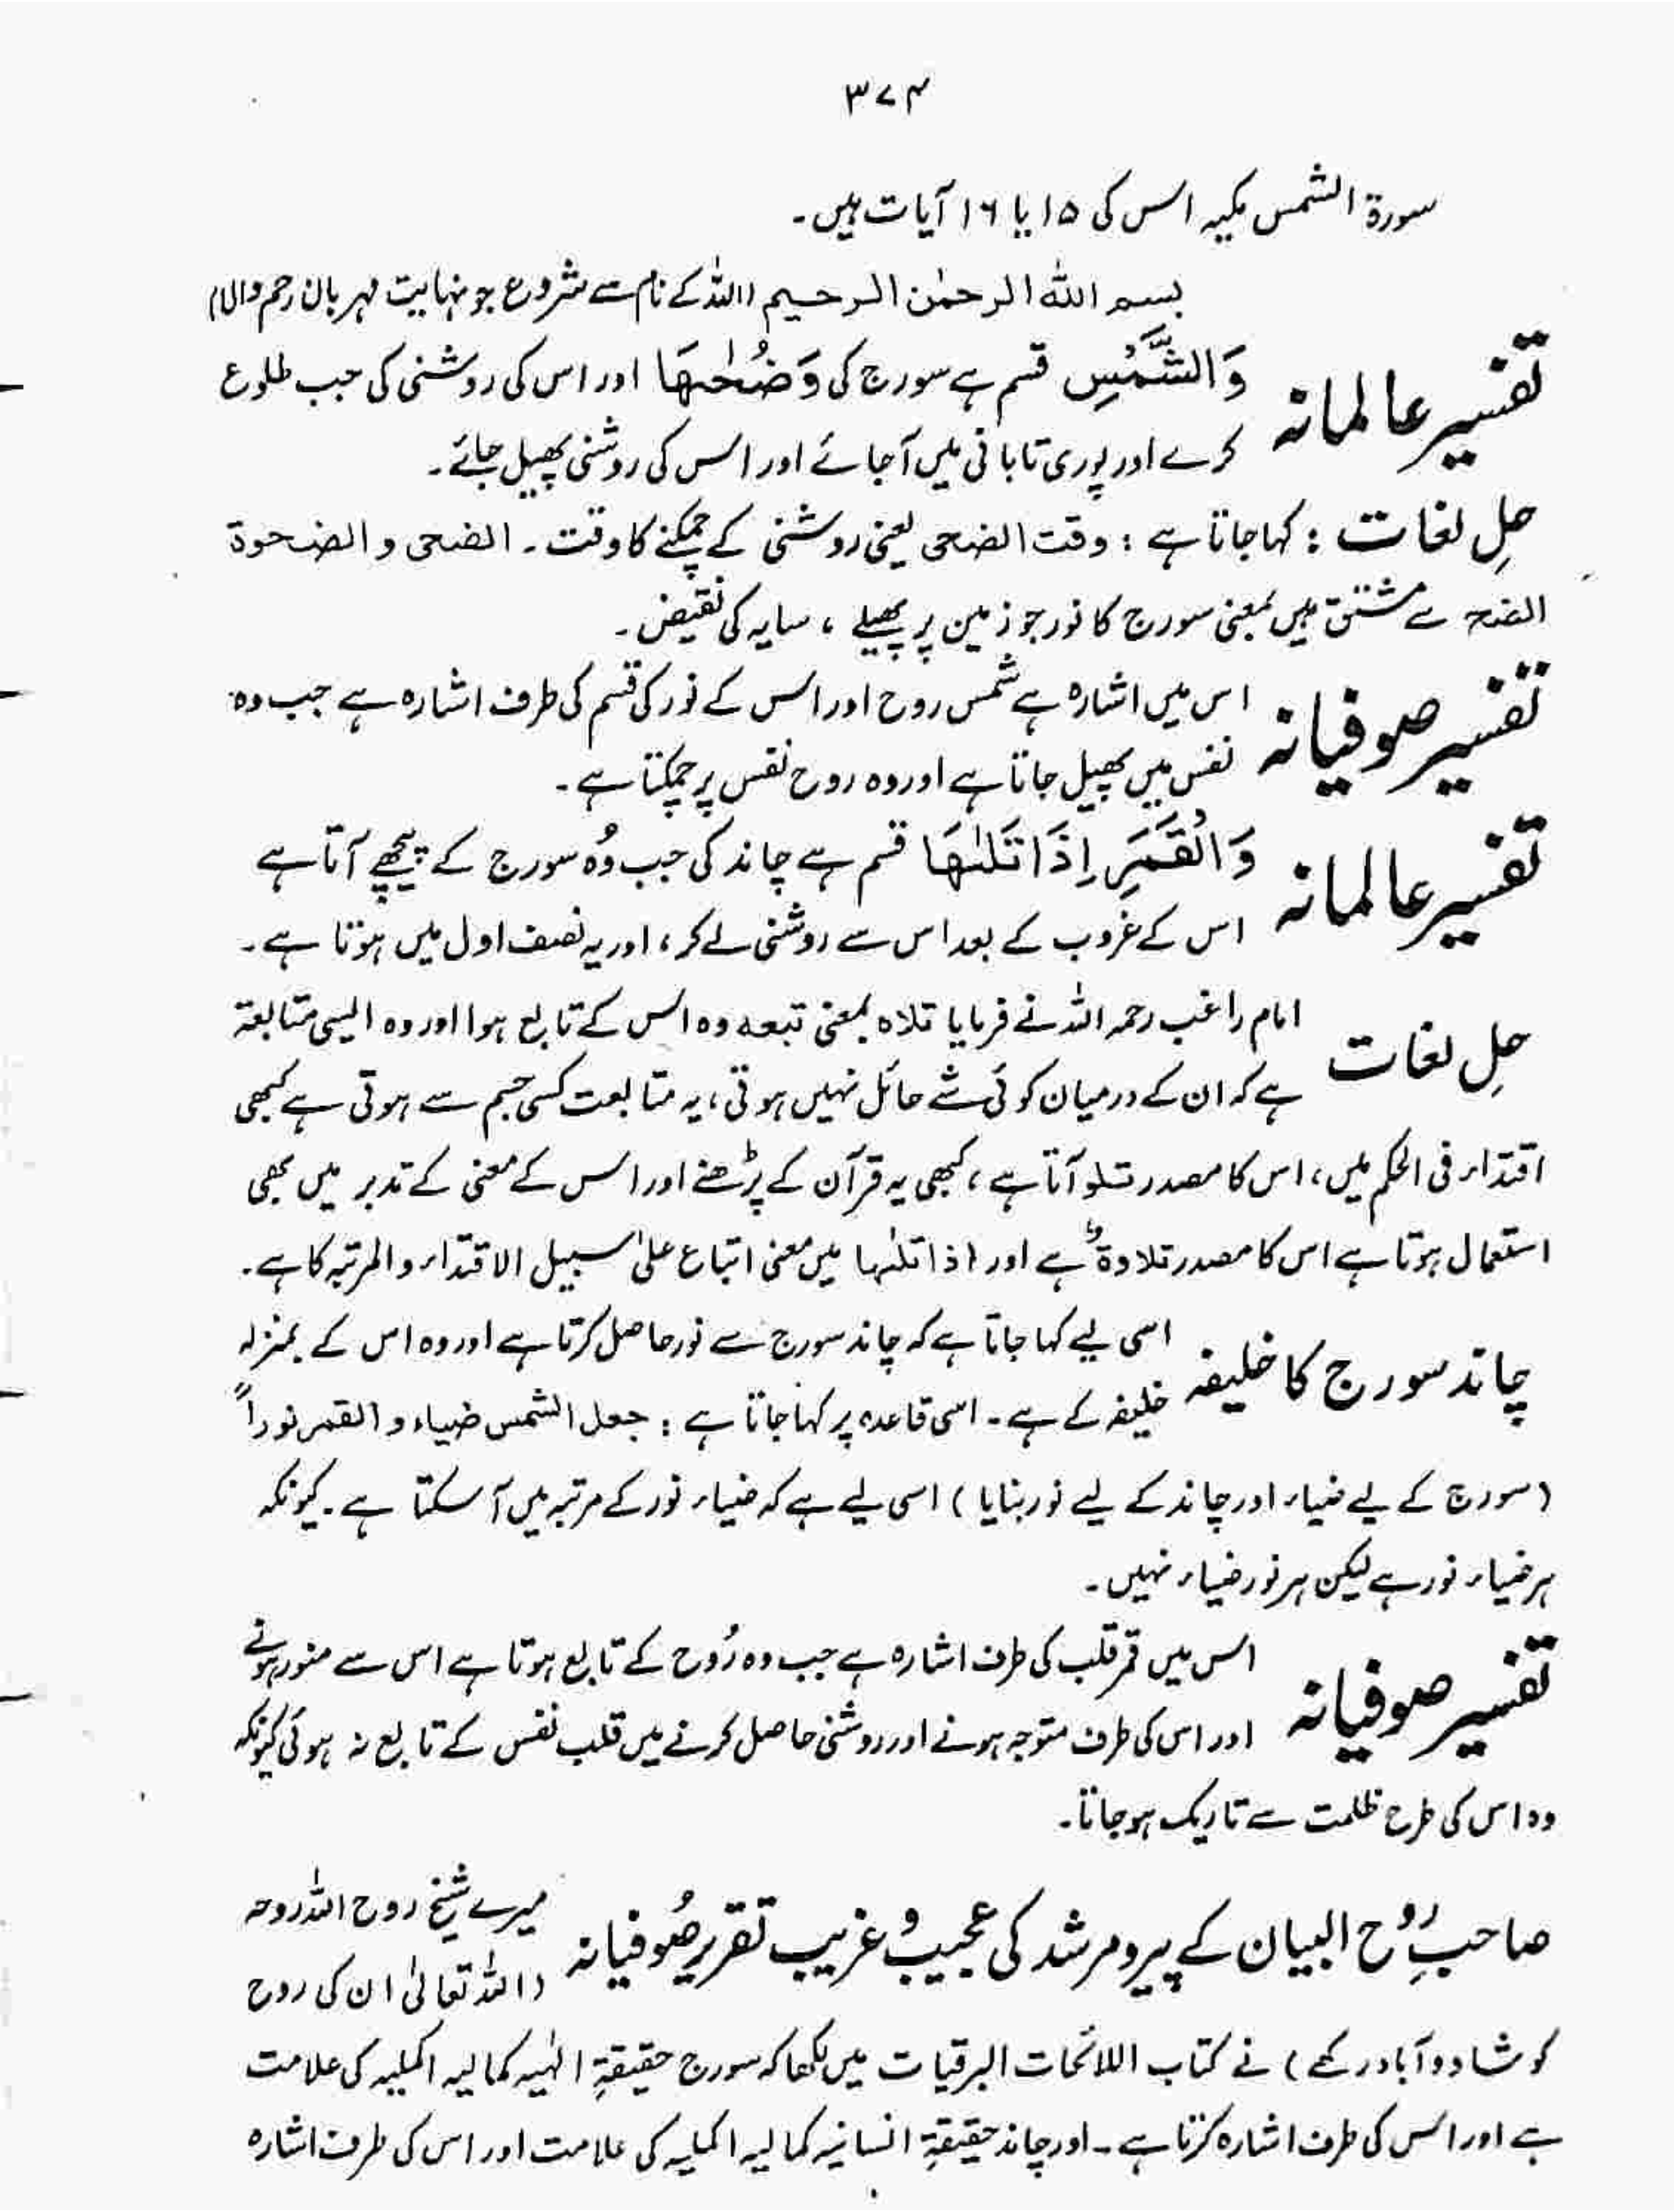 ۳۷۴
سورۃ الشمس مکیہ اس کی ۱۵ یا ۱۶ آیات ہیں۔
بسم اللہ الرحمٰن الرحیم (اللہ کے نام سے شروع جو نہایت مہربان رحم والا)
تفسیر عالمانہ وَالشَّمْسِ قسم ہے سورج کی وَضُحٰىهَا اور اس کی روشنی کی جب طلوع
کرے اور پوری تابانی میں آجائے اور اس کی روشنی پھیل جائے۔
حلِ لغات : کہا جاتا ہے : وقت الضحی یعنی روشنی کے چمکنے کا وقت۔ الضحی و الضحوۃ
الضح سے مشتق ہیں بمعنی سورج کا نور جو زمین پر پھیلے ، سایہ کی نقیض۔
تفسیر صوفیانہ اس میں اشارہ ہے شمس روح اور اس کے نور کی قسم کی طرف اشارہ ہے جب وہ
نفس میں پھیل جاتا ہے اور وہ روح نفس پر چمکتا ہے۔
تفسیر عالمانہ وَالْقَمَرِ اِذَا تَلٰىهَا قسم ہے چاند کی جب وُہ سورج کے پیچھے آتا ہے
اس کے غروب کے بعد اس سے روشنی لے کر ، اور یہ نصف اول میں ہوتا ہے۔
حلِ لغات امام راغب رحمہ اللہ نے فرمایا تلاہ بمعنی تبعہ وہ اس کے تابع ہوا اور وہ ایسی متابعۃ
ہے کہ ان کے درمیان کوئی شے حائل نہیں ہوتی ، یہ متابعت کسی جسم سے ہوتی ہے کبھی
اقتداء فی الحکم میں ، اس کا مصدر تلو آتا ہے ، کبھی یہ قرآن کے پڑھنے اور اس کے معنی کے تدبر میں بھی
استعمال ہوتا ہے اس کا مصدر تلاوۃٌ ہے اور اذا تلٰہا میں معنی اتباع علیٰ سبیل الاقتداء و المرتبہ کا ہے۔
چاند سورج کا خلیفہ اسی لیے کہا جاتا ہے کہ چاند سورج سے نور حاصل کرتا ہے اور وہ اس کے بمنزلہ
خلیفہ کے ہے۔ اسی قاعدہ پر کہا جاتا ہے : جعل الشمس ضیاء و القمر نوراً
(سورج کے لیے ضیاء اور چاند کے لیے نور بنایا) اسی لیے ہے کہ ضیاء نور کے مرتبہ میں آ سکتا ہے۔ کیونکہ
ہر ضیاء نور ہے لیکن ہر نور ضیاء نہیں۔
تفسیر صوفیانہ اس میں قمر قلب کی طرف اشارہ ہے جب وہ رُوح کے تابع ہوتا ہے اس سے منور ہونے
اور اس کی طرف متوجہ ہونے اور روشنی حاصل کرنے میں قلب نفس کے تابع نہ ہوئی کیونکہ
وہ اس کی طرح ظلمت سے تاریک ہو جاتا۔
صاحبِ رُوح البیان کے پیرو مرشد کی عجیب و غریب تقریرِ صُوفیانہ میرے شیخ روح اللہ روحہ
(اللہ تعالیٰ ان کی روح
کو شاد و آباد رکھے) نے کتاب اللائحات البرقیات میں لکھا کہ سورج حقیقۃِ الٰہیہ کمالیہ اکملیہ کی علامت
ہے اور اس کی طرف اشارہ کرتا ہے۔ اور چاند حقیقۃِ انسانیہ کمالیہ اکملیہ کی علامت اور اس کی طرف اشارہ